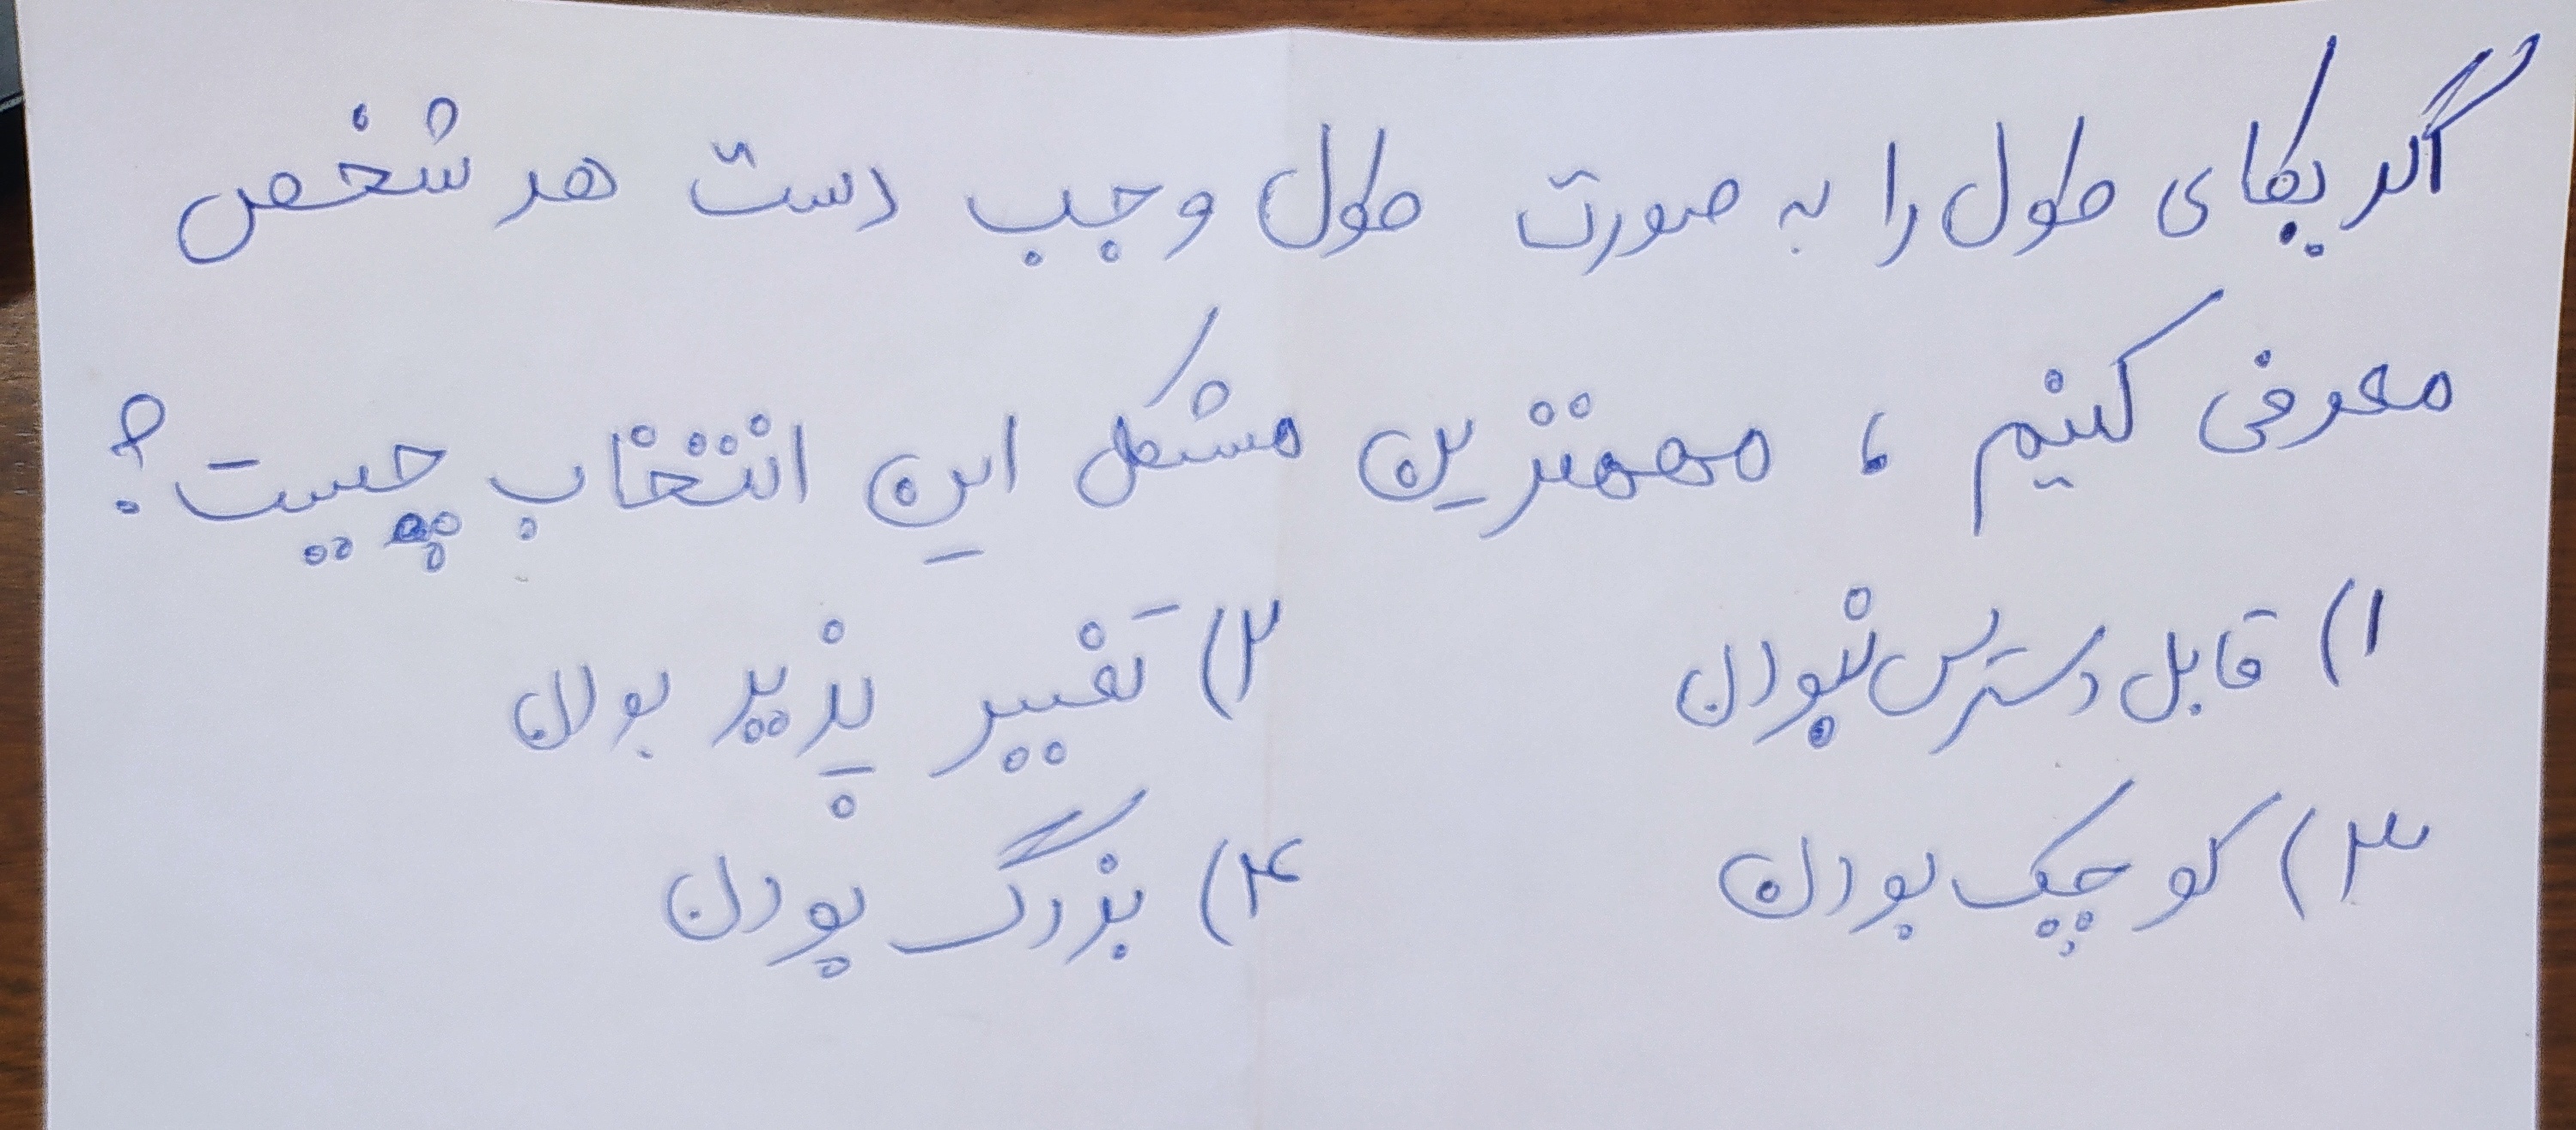 اگر یکای طول را به صورت طول وجب دست هر شخص
معرفی کنیم ، مهمترین مشکل این انتخاب چیست؟
۱) قابل دسترس نبودن ۲) تغییر پذیر بودن
۳) کوچک بودن ۴) بزرگ بودن